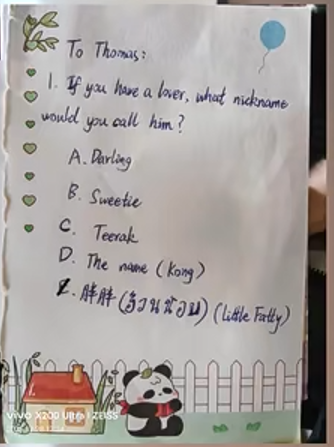 To Thomas:
1. If you have a lover, what nickname
would you call him?
A. Darling
B. Sweetie
C. Teerak
D. The name (Kong)
E. 胖胖 (อ้วนอ้วน) (Little Fatty)
vivo X200 Ultra | ZEISS